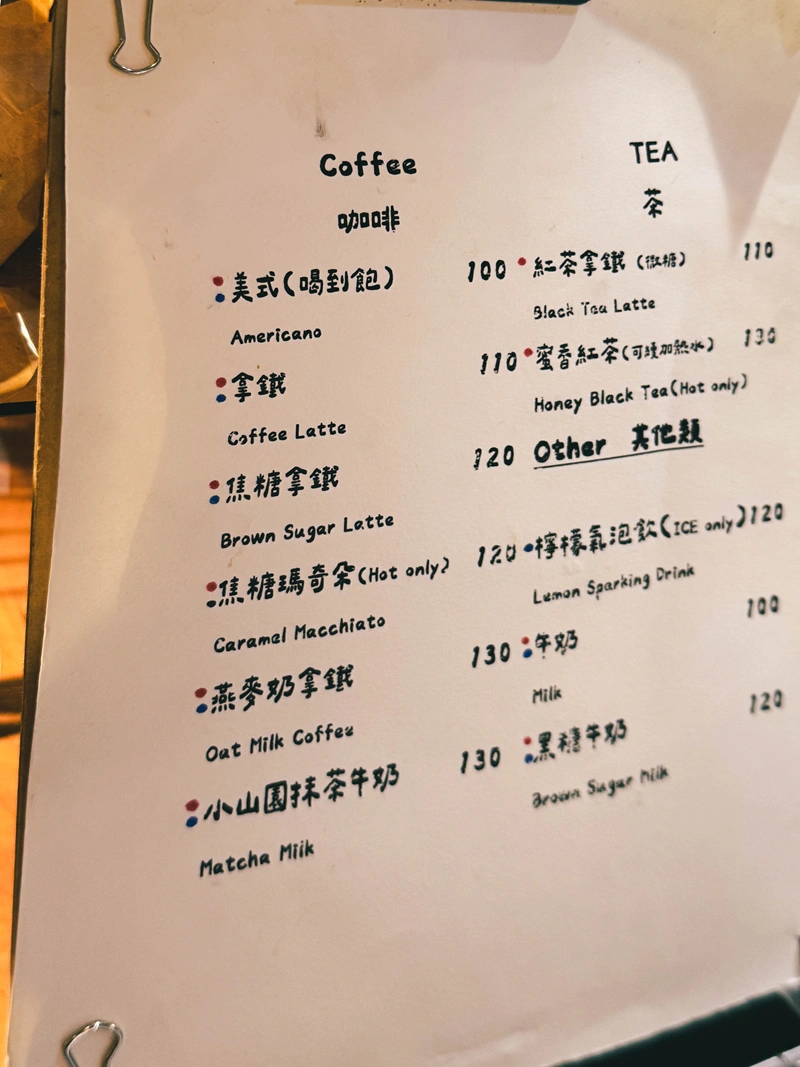 Coffee
咖啡
美式(喝到飽) 100
Americano
拿鐵 110
Coffee Latte
焦糖拿鐵 120
Brown Sugar Latte
焦糖瑪奇朵(Hot only) 120
Caramel Macchiato
燕麥奶拿鐵 130
Oat Milk Coffee
小山園抹茶牛奶 130
Matcha Milk
TEA
茶
紅茶拿鐵 (微糖) 110
Black Tea Latte
蜜香紅茶(可續加熱水) 130
Honey Black Tea(Hot only)
Other 其他類
檸檬氣泡飲(ICE only) 120
Lemon Sparking Drink
牛奶 100
Milk
黑糖牛奶 120
Brown Sugar Milk